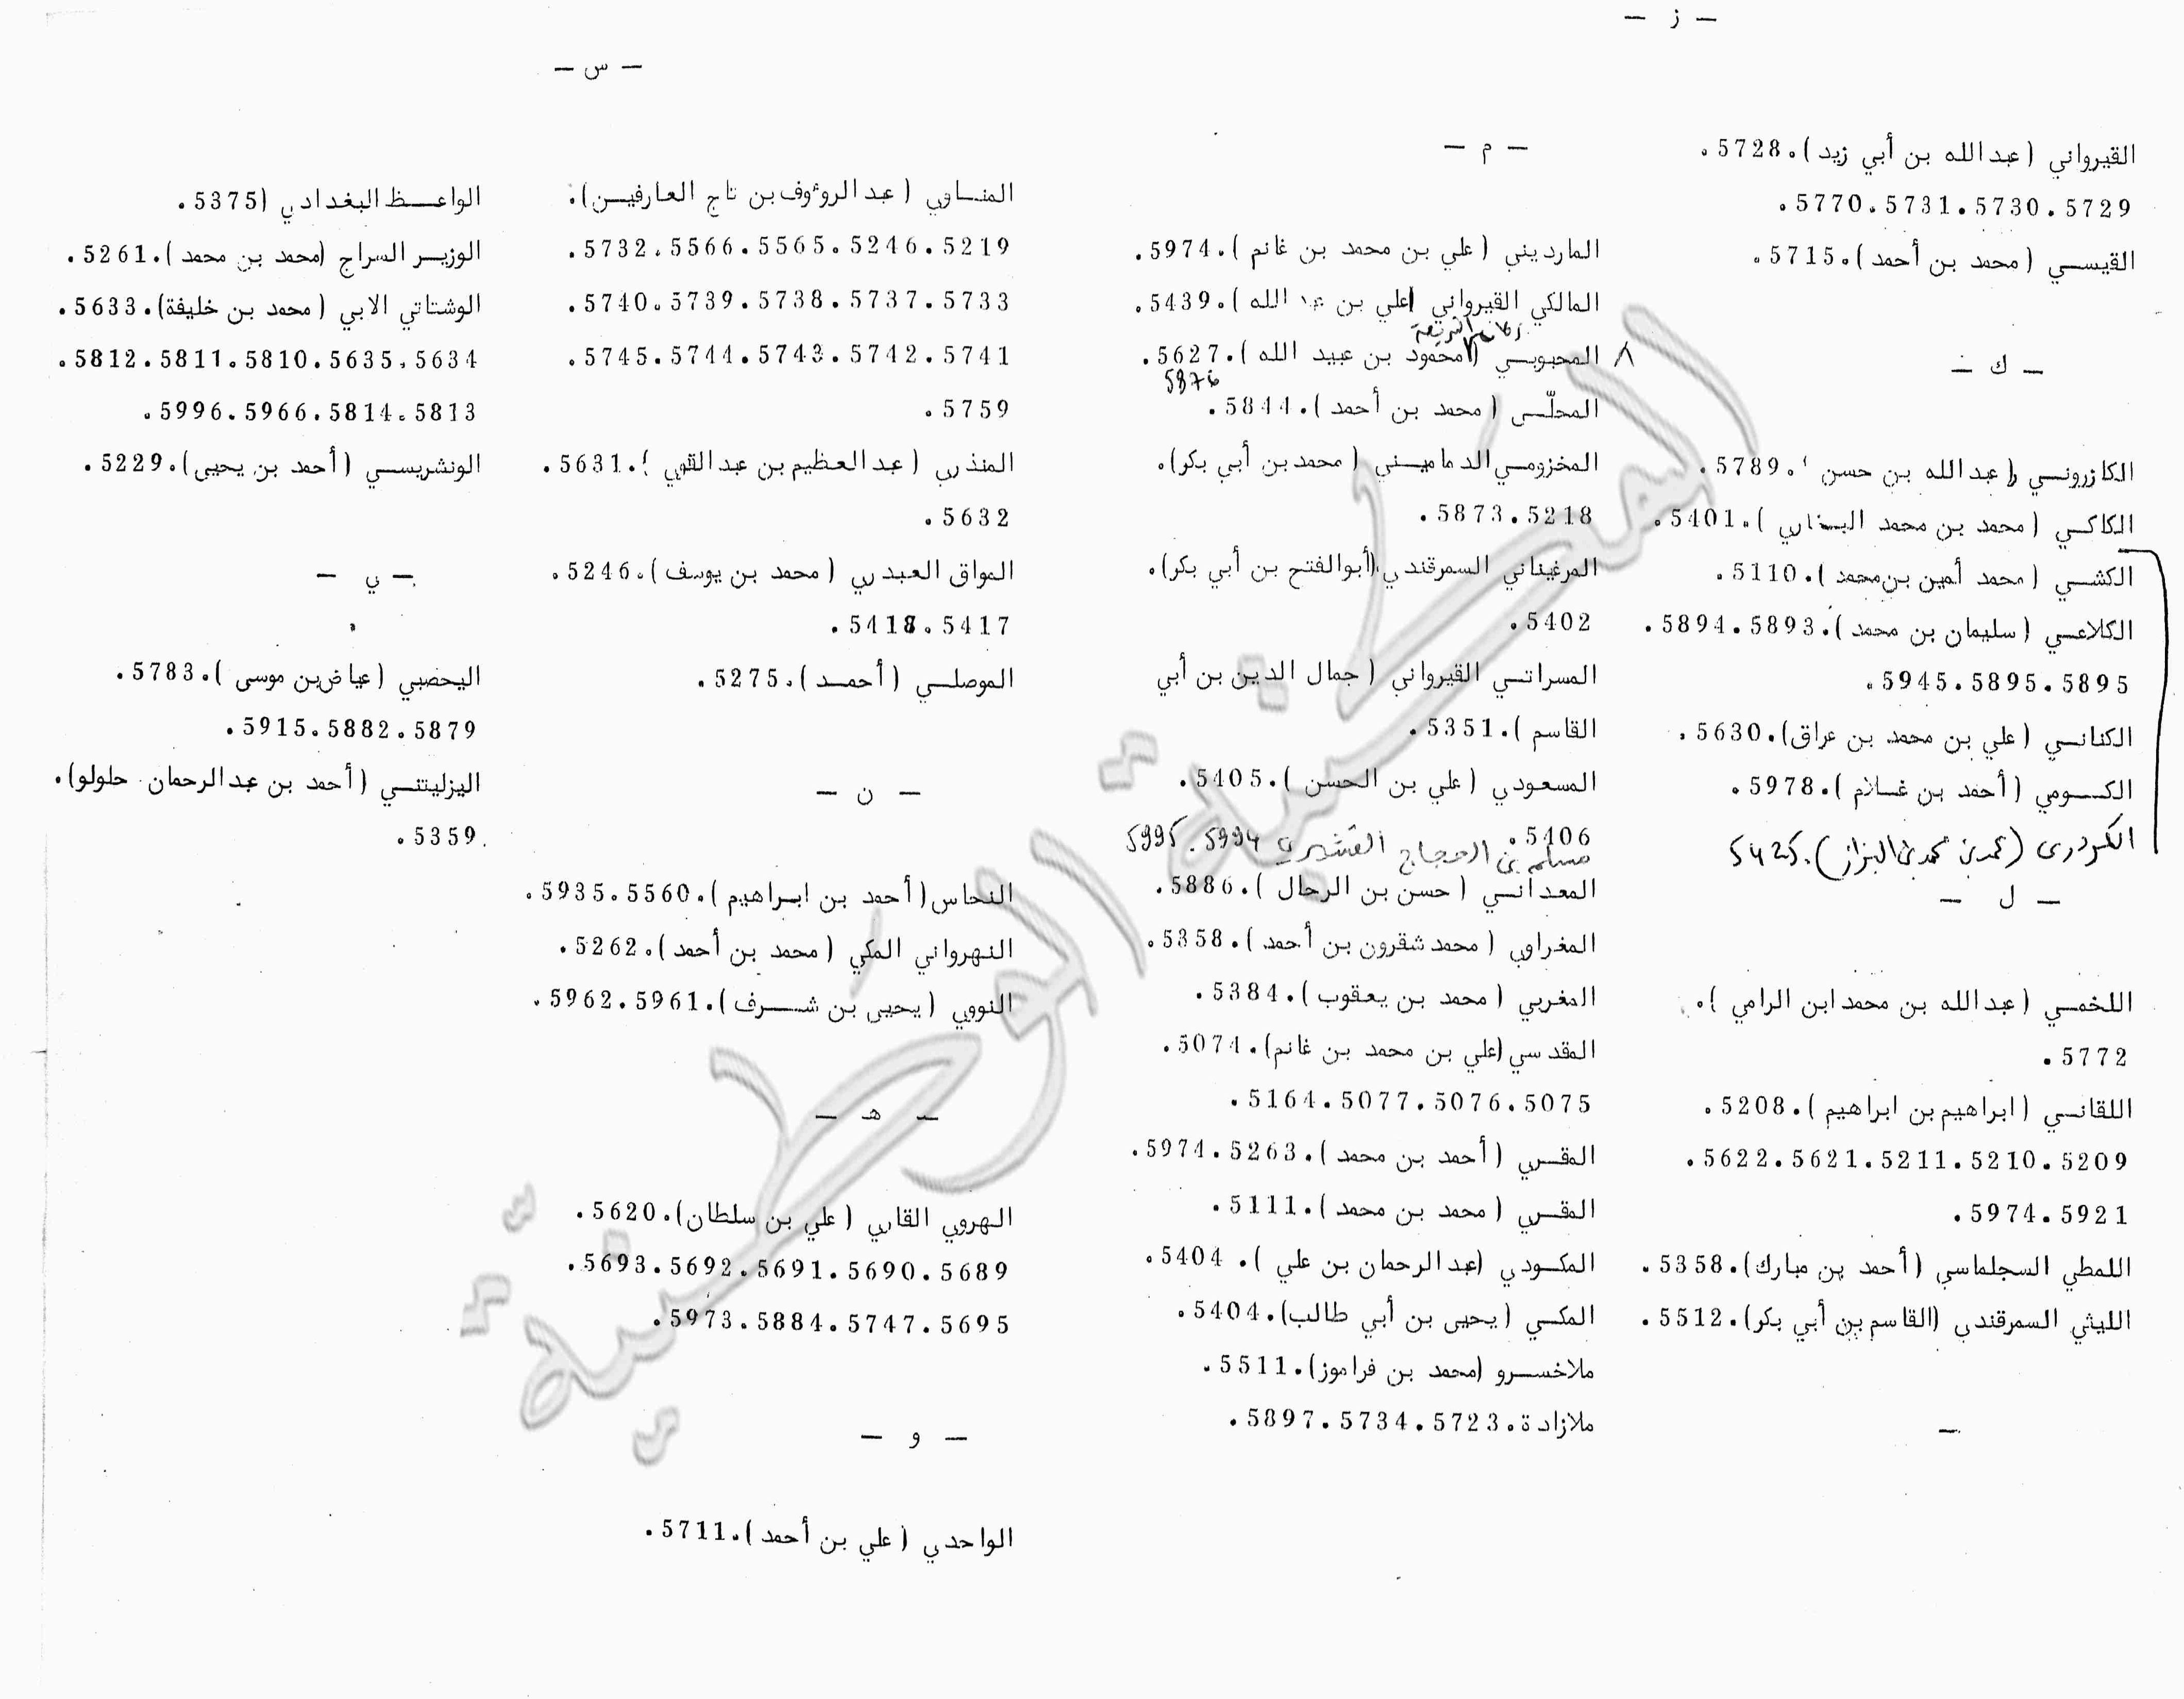 — ز —
القيرواني ( عبد الله بن أبي زيد ). 5728.
5729. 5730. 5731. 5770.
القيسي ( محمد بن أحمد ). 5715.
— ك —
الكازروني ( عبد الله بن حسن ). 5789.
الكاكي ( محمد بن محمد البخاري ). 5401.
الكشي ( محمد أمين بن محمد ). 5110.
الكلاعي ( سليمان بن محمد ). 5893. 5894.
5895. 5895. 5945.
الكناني ( علي بن محمد بن عراق). 5630.
الكومي ( أحمد بن غلام ). 5978.
الكردرى (محمد بن محمد بن البزاز). 5425
— ل —
اللخمي ( عبد الله بن محمد ابن الرامي ).
5772.
اللقاني ( ابراهيم بن ابراهيم ). 5208.
5209. 5210. 5211. 5621. 5622.
5921. 5974.
اللمطي السجلماسي ( أحمد بن مبارك). 5358.
الليثي السمرقندي (القاسم بن أبي بكر). 5512.
—
— م —
المارديني ( علي بن محمد بن غانم ). 5974.
المالكي القيرواني (علي بن عبد الله ). 5439.
تاج الشريعة
المحبوبي ( محمود بن عبيد الله ). 5627.
5876
المحلّى ( محمد بن أحمد ). 5844.
المخزومي الدماميني ( محمد بن أبي بكر).
5218. 5873.
المرغيناني السمرقندي (أبو الفتح بن أبي بكر).
5402.
المسراتي القيرواني ( جمال الدين بن أبي
القاسم ). 5351.
المسعودي ( علي بن الحسن ). 5405.
5406.
مسلم بن الحجاج القشيري 5994. 5995
المعداني ( حسن بن الرحال ). 5886.
المغراوي ( محمد شقرون بن أحمد ). 5358.
المغربي ( محمد بن يعقوب ). 5384.
المقدسي (علي بن محمد بن غانم). 5074.
5075. 5076. 5077. 5164.
المقري ( أحمد بن محمد ). 5263. 5974.
المقري ( محمد بن محمد ). 5111.
المكودي (عبد الرحمان بن علي ). 5404.
المكي ( يحيى بن أبي طالب). 5404.
ملاخسرو (محمد بن فراموز). 5511.
ملازادة. 5723. 5734. 5897.
— س —
المناوي ( عبد الروءوف بن تاج العارفين).
5219. 5246. 5565. 5566. 5732.
5733. 5737. 5738. 5739. 5740.
5741. 5742. 5743. 5744. 5745.
5759.
المنذري ( عبد العظيم بن عبد القوي ). 5631.
5632.
المواق العبدري ( محمد بن يوسف ). 5246.
5417. 5418.
الموصلي ( أحمد ). 5275.
— ن —
النحاس ( أحمد بن ابراهيم ). 5560. 5935.
النهرواني المكي ( محمد بن أحمد ). 5262.
النووي ( يحيى بن شرف ). 5961. 5962.
— هـ —
الهروي القاري ( علي بن سلطان). 5620.
5689. 5690. 5691. 5692. 5693.
5695. 5747. 5884. 5973.
— و —
الواحدي ( علي بن أحمد ). 5711.
الواعظ البغدادي (5375.
الوزير السراج (محمد بن محمد ). 5261.
الوشتاتي الابي ( محمد بن خليفة). 5633.
5634. 5635. 5810. 5811. 5812.
5813. 5814. 5966. 5996.
الونشريسي ( أحمد بن يحيى). 5229.
— ي —
اليحصبي ( عياض بن موسى ). 5783.
5879. 5882. 5915.
اليزليتني ( أحمد بن عبد الرحمان حلولو).
5359.
المكتبة الوطنية التونسية